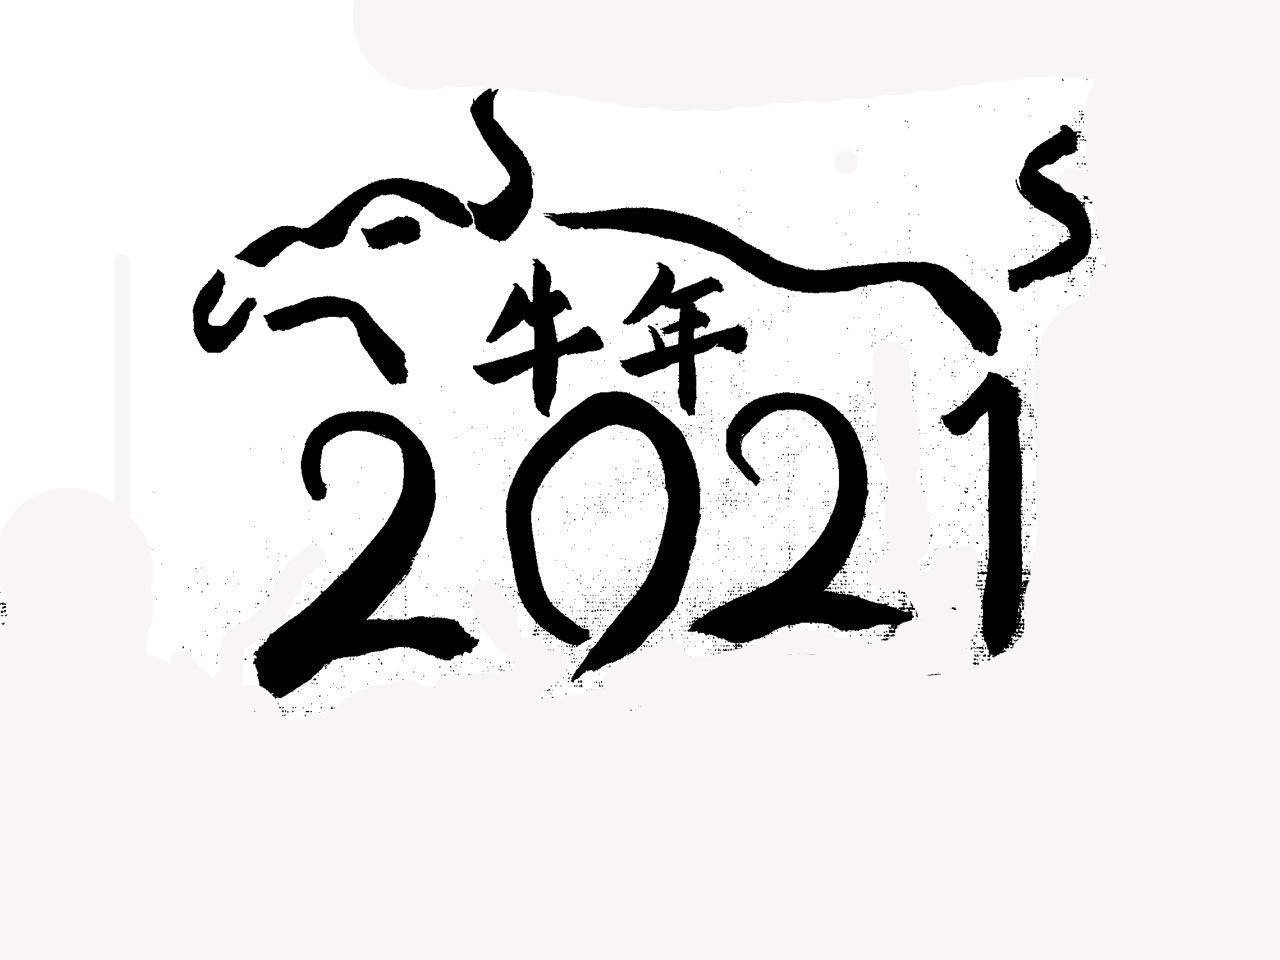 牛年
2021